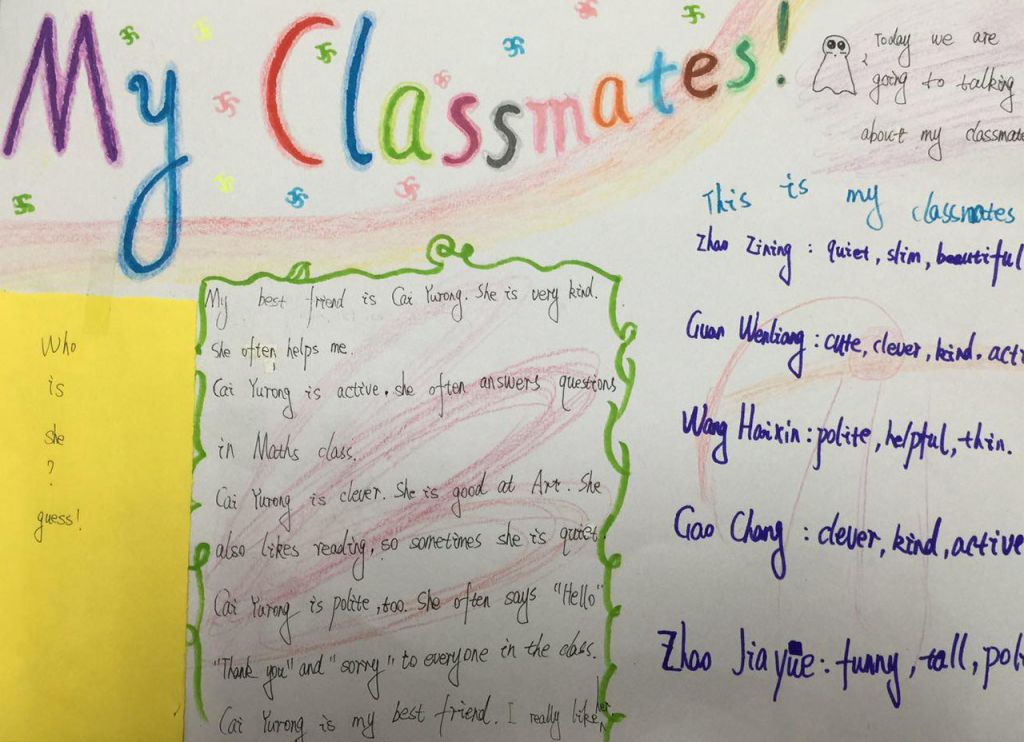 My Classmates!
Today we are
going to talking
about my classmate
This is my classmates
Zhao Zining : quiet, slim, beautiful
Guan Wenliang : cute, clever, kind. acti
Wang Haixin : polite, helpful, thin.
Gao Chang : clever, kind, active
Zhao Jiayue : funny, tall, poli
My best friend is Cai Yurong. She is very kind.
She often helps me.
Cai Yurong is active. she often answers questions
in Maths class.
Cai Yurong is clever. She is good at Art. She
also likes reading, so sometimes she is quiet.
Cai Yurong is polite, too. She often says "Hello"
"Thank you" and "sorry" to everyone in the class.
Cai Yurong is my best friend. I really like her
Who
is
she
?
guess!